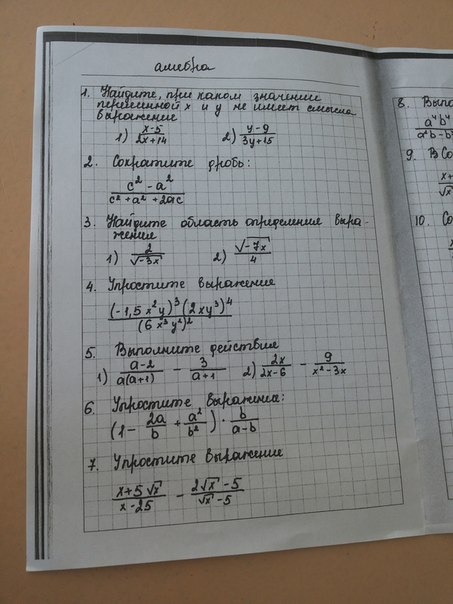 алгебра
1. Найдите, при каком значении
переменной x и y не имеет смысла
выражение
1) (x-5)/(2x+14) 2) (y-9)/(3y+15)
2. Сократите дробь:
(c² - a²)/(c² + a² + 2ac)
3. Найдите область определения выра-
жения
1) 2/√(-3x) 2) √(-7x)/4
4. Упростите выражение
(-1,5x²y)³(2xy³)⁴/(6x³y²)²
5. Выполните действия
1) (a-2)/(a(a+1)) - 3/(a+1) 2) 2x/(2x-6) - 9/(x²-3x)
6. Упростите выражение:
(1 - 2a/b + a²/b²) · b/(a-b)
7. Упростите выражение
(x+5√x)/(x-25) - (2√x-5)/(√x-5)
8. Выпо
a⁴b⁴
a⁶b-b⁴
9. В Со
x+
√x
10. Со